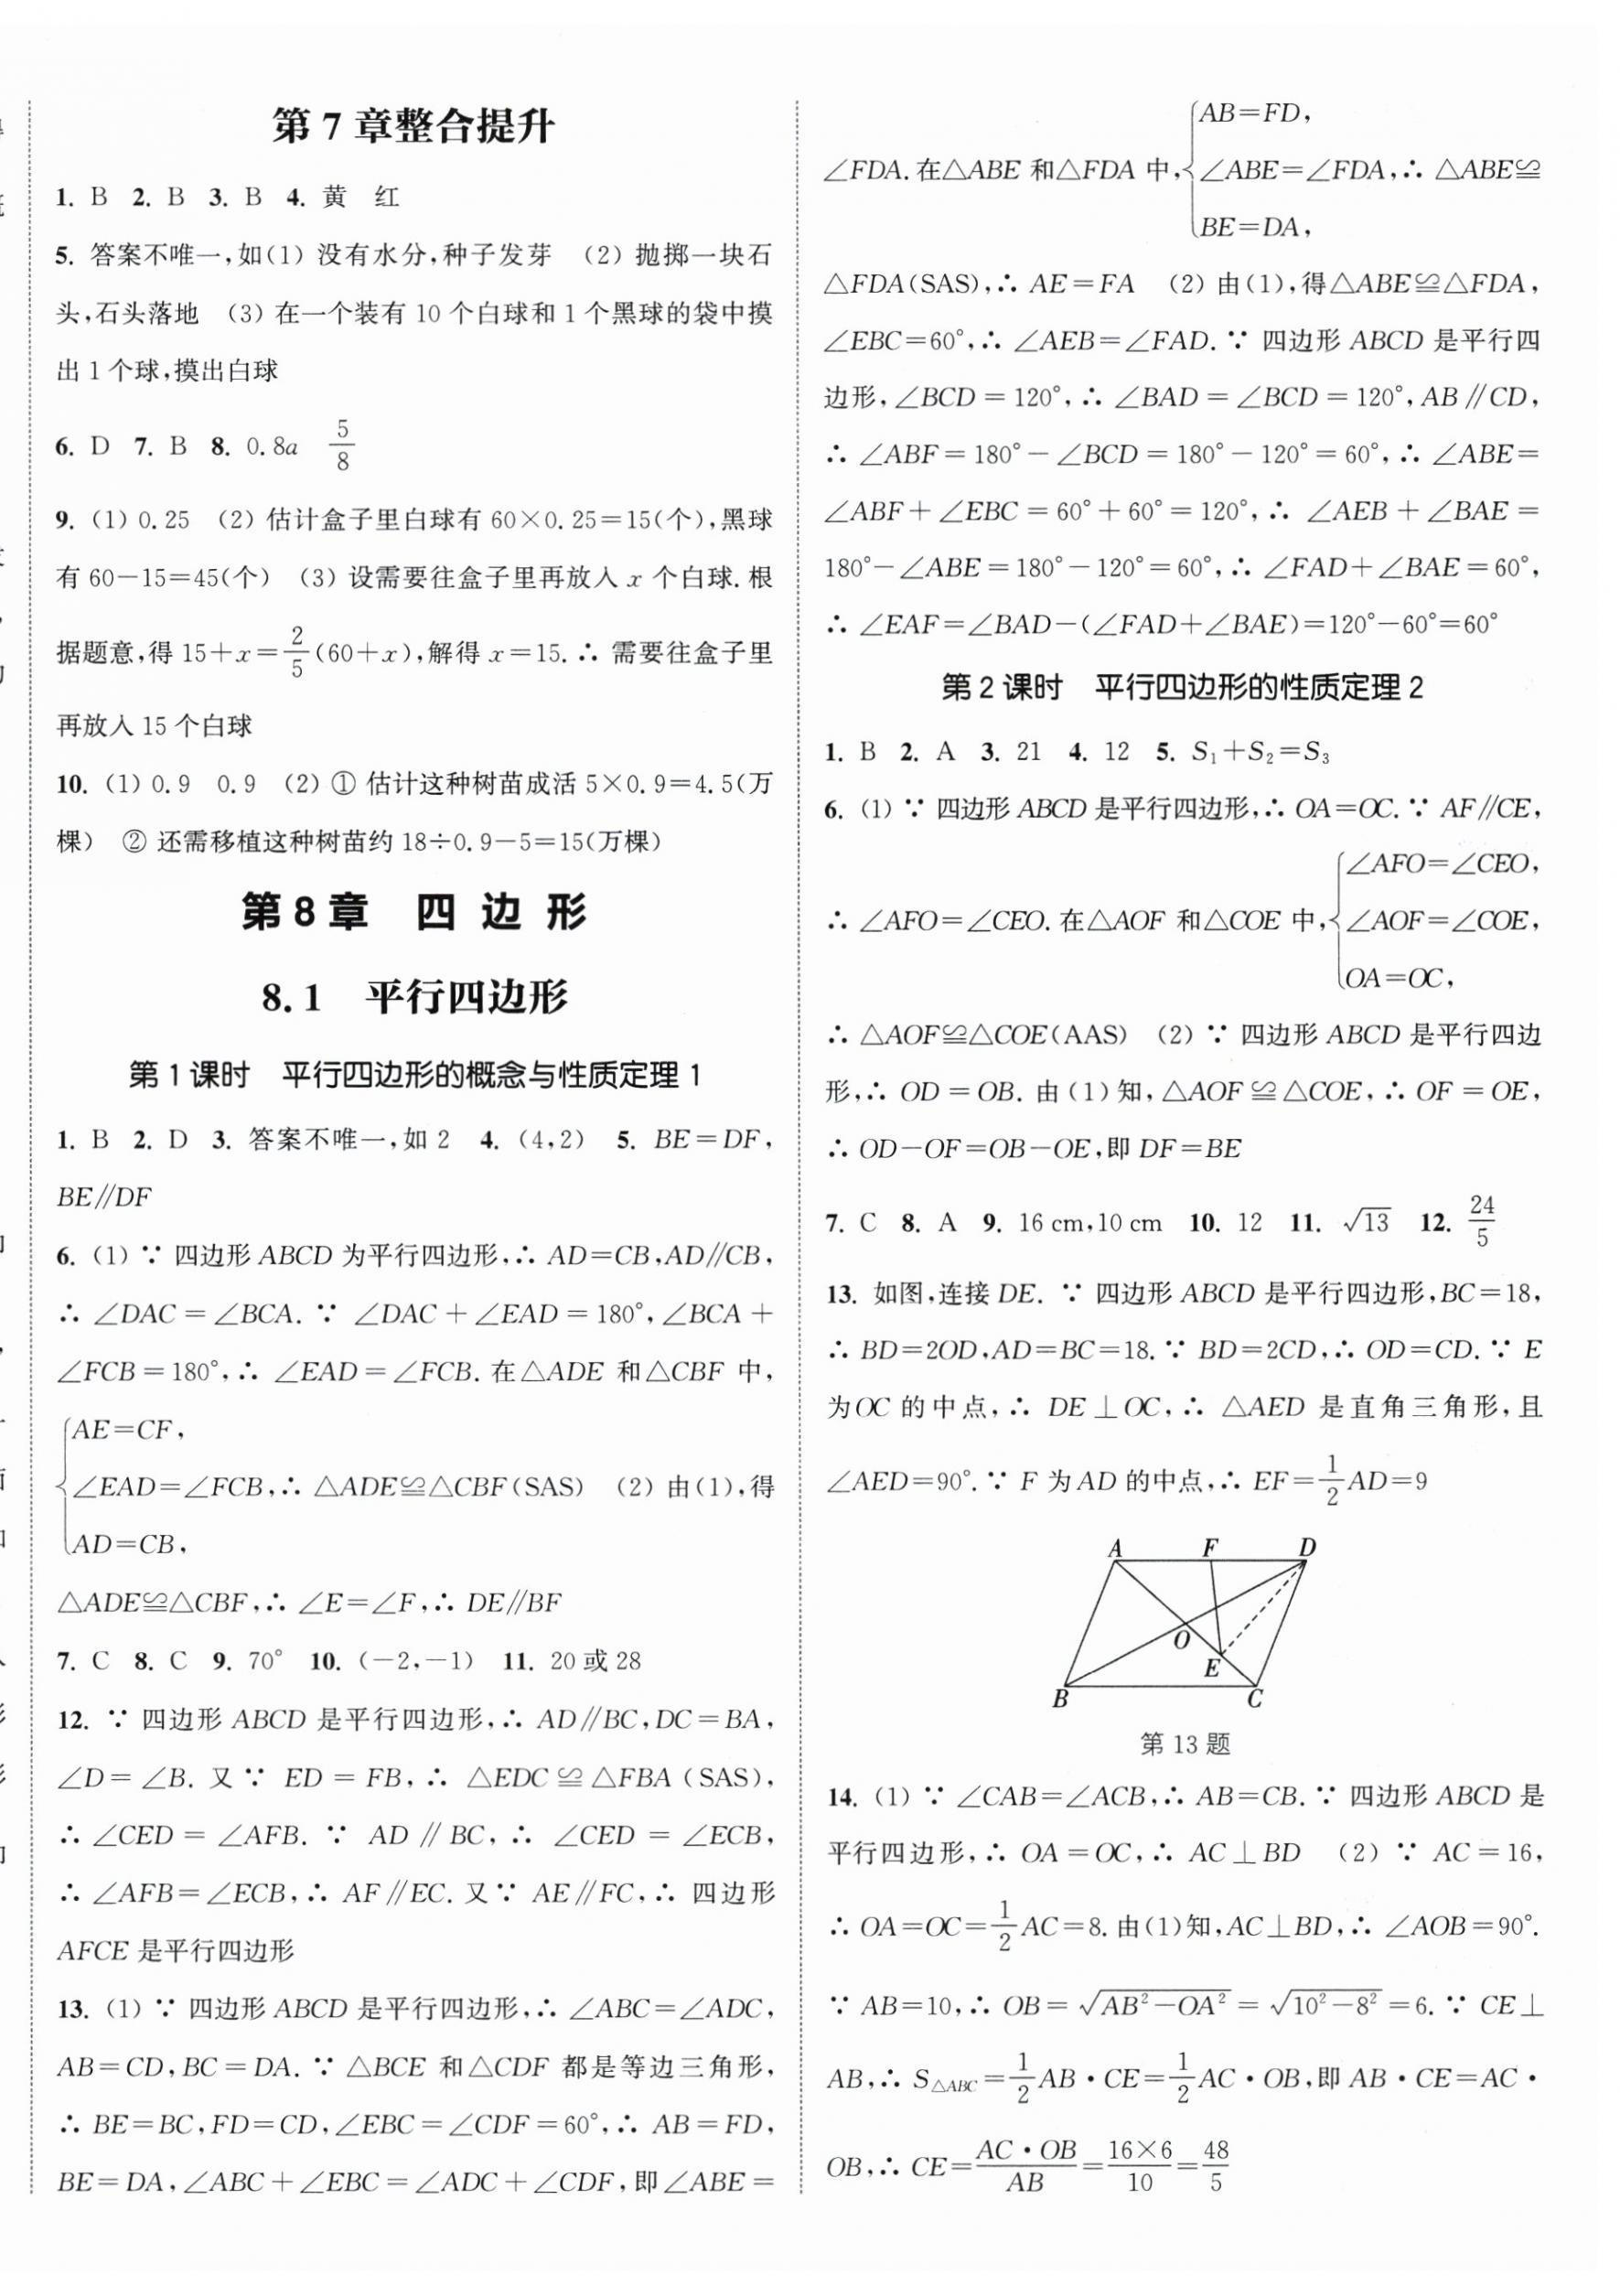 第 7 章整合提升
1. B 2. B 3. B 4. 黄 红
5. 答案不唯一,如(1) 没有水分,种子发芽 (2) 抛掷一块石
头,石头落地 (3) 在一个装有 10 个白球和 1 个黑球的袋中摸
出 1 个球,摸出白球
6. D 7. B 8. 0.8a 5/8
9. (1) 0.25 (2) 估计盒子里白球有 60×0.25=15(个),黑球
有 60-15=45(个) (3) 设需要往盒子里再放入 x 个白球. 根
据题意,得 15+x=2/5(60+x),解得 x=15. ∴ 需要往盒子里
再放入 15 个白球
10. (1) 0.9 0.9 (2) ① 估计这种树苗成活 5×0.9=4.5(万
棵) ② 还需移植这种树苗约 18÷0.9-5=15(万棵)
第 8 章 四 边 形
8.1 平行四边形
第 1 课时 平行四边形的概念与性质定理 1
1. B 2. D 3. 答案不唯一,如 2 4. (4,2) 5. BE=DF,
BE∥DF
6. (1) ∵ 四边形 ABCD 为平行四边形,∴ AD=CB,AD∥CB,
∴ ∠DAC=∠BCA. ∵ ∠DAC+∠EAD=180°,∠BCA+
∠FCB=180°,∴ ∠EAD=∠FCB. 在△ADE 和△CBF 中,
AE=CF,
∠EAD=∠FCB,∴ △ADE≌△CBF(SAS) (2) 由(1),得
AD=CB,
△ADE≌△CBF,∴ ∠E=∠F,∴ DE∥BF
7. C 8. C 9. 70° 10. (-2,-1) 11. 20 或 28
12. ∵ 四边形 ABCD 是平行四边形,∴ AD∥BC,DC=BA,
∠D=∠B. 又∵ ED=FB,∴ △EDC≌△FBA(SAS),
∴ ∠CED=∠AFB. ∵ AD∥BC,∴ ∠CED=∠ECB,
∴ ∠AFB=∠ECB,∴ AF∥EC. 又∵ AE∥FC,∴ 四边形
AFCE 是平行四边形
13. (1) ∵ 四边形 ABCD 是平行四边形,∴ ∠ABC=∠ADC,
AB=CD,BC=DA. ∵ △BCE 和△CDF 都是等边三角形,
∴ BE=BC,FD=CD,∠EBC=∠CDF=60°,∴ AB=FD,
BE=DA,∠ABC+∠EBC=∠ADC+∠CDF,即∠ABE=
AB=FD,
∠FDA. 在△ABE 和△FDA 中,∠ABE=∠FDA,∴ △ABE≌
BE=DA,
△FDA(SAS),∴ AE=FA (2) 由(1),得△ABE≌△FDA,
∠EBC=60°,∴ ∠AEB=∠FAD. ∵ 四边形 ABCD 是平行四
边形,∠BCD=120°,∴ ∠BAD=∠BCD=120°,AB∥CD,
∴ ∠ABF=180°-∠BCD=180°-120°=60°,∴ ∠ABE=
∠ABF+∠EBC=60°+60°=120°,∴ ∠AEB+∠BAE=
180°-∠ABE=180°-120°=60°,∴ ∠FAD+∠BAE=60°,
∴ ∠EAF=∠BAD-(∠FAD+∠BAE)=120°-60°=60°
第 2 课时 平行四边形的性质定理 2
1. B 2. A 3. 21 4. 12 5. S₁+S₂=S₃
6. (1) ∵ 四边形 ABCD 是平行四边形,∴ OA=OC. ∵ AF∥CE,
∠AFO=∠CEO,
∴ ∠AFO=∠CEO. 在△AOF 和△COE 中,∠AOF=∠COE,
OA=OC,
∴ △AOF≌△COE(AAS) (2) ∵ 四边形 ABCD 是平行四边
形,∴ OD=OB. 由(1)知,△AOF≌△COE,∴ OF=OE,
∴ OD-OF=OB-OE,即 DF=BE
7. C 8. A 9. 16 cm,10 cm 10. 12 11. √13 12. 24/5
13. 如图,连接 DE. ∵ 四边形 ABCD 是平行四边形,BC=18,
∴ BD=2OD,AD=BC=18. ∵ BD=2CD,∴ OD=CD. ∵ E
为OC 的中点,∴ DE⊥OC,∴ △AED 是直角三角形,且
∠AED=90°. ∵ F 为 AD 的中点,∴ EF=1/2AD=9
A F D
O
E
B C
第 13 题
14. (1) ∵ ∠CAB=∠ACB,∴ AB=CB. ∵ 四边形 ABCD 是
平行四边形,∴ OA=OC,∴ AC⊥BD (2) ∵ AC=16,
∴ OA=OC=1/2AC=8. 由(1)知,AC⊥BD,∴ ∠AOB=90°.
∵ AB=10,∴ OB=√(AB²-OA²)=√(10²-8²)=6. ∵ CE⊥
AB,∴ S△ABC=1/2AB·CE=1/2AC·OB,即 AB·CE=AC·
OB,∴ CE=AC·OB/AB=16×6/10=48/5